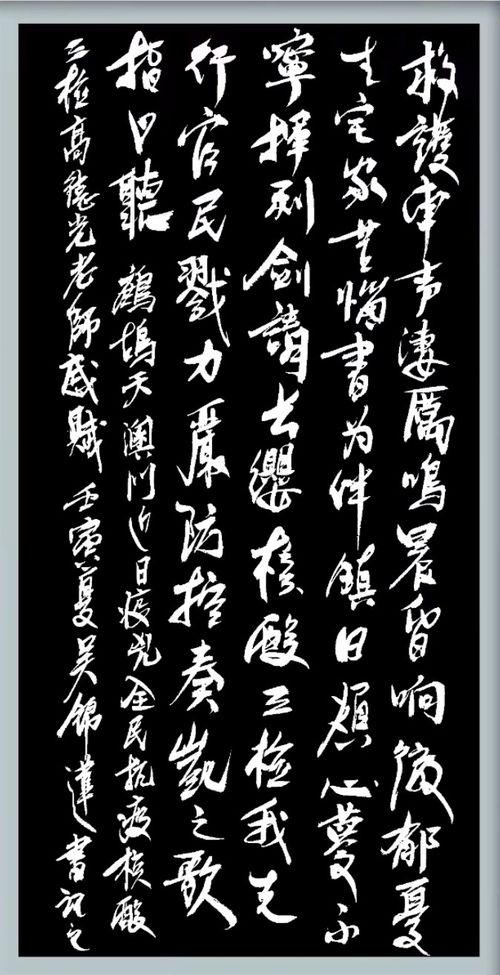 救護車声淒厲鳴晨昏响徹郁憂
生宅家苦惱書为伴鎮日頹心夢不
寧揮利劍請長纓核酸三檢我先
行官民戮力嚴防控奏凱之歌
指日聽 鷓鴣天澳門近日疫兇全民抗疫核酸
三檢高德光老師感賦 壬寅夏吳錦蓮書記之